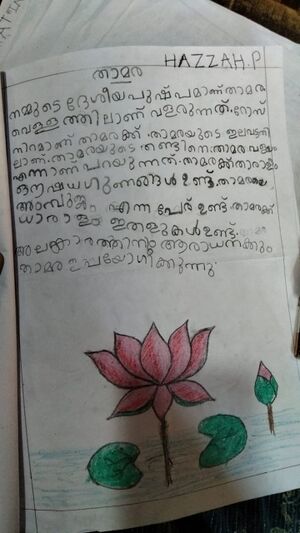 HAZZAH.P
താമര
നമ്മുടെ ദേശീയപുഷ്പമാണ് താമര
വെള്ളത്തിലാണ് വളരുന്നത്. റോസ്
നിറമാണ് താമരക്ക്. താമരയുടെ ഇലവട്ടത്തി
ലാണ്. താമരയുടെ തണ്ടിനെ താമര വളയം
എന്നാണ് പറയുന്നത്. താമരക്ക് ധാരാളം
ഔഷധഗുണങ്ങൾ ഉണ്ട്. താമരക്ക്
അംബുജം എന്ന പേര് ഉണ്ട്. താമരക്ക്
ധാരാളം ഇതളുകൾ ഉണ്ട്.
അലങ്കാരത്തിനും ആരാധനക്കും
താമര ഉപയോഗിക്കുന്നു.